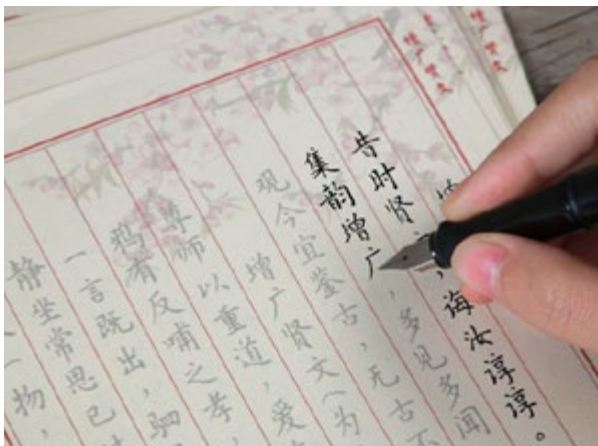 增广贤文
增广贤文
昔时贤，诲汝谆谆。
集韵增广，多见多闻
观今宜鉴古，无古不
增广贤文（为
尊师以重道，爱
鸦有反哺之孝，
一言既出，驷
静坐常思己
一物，